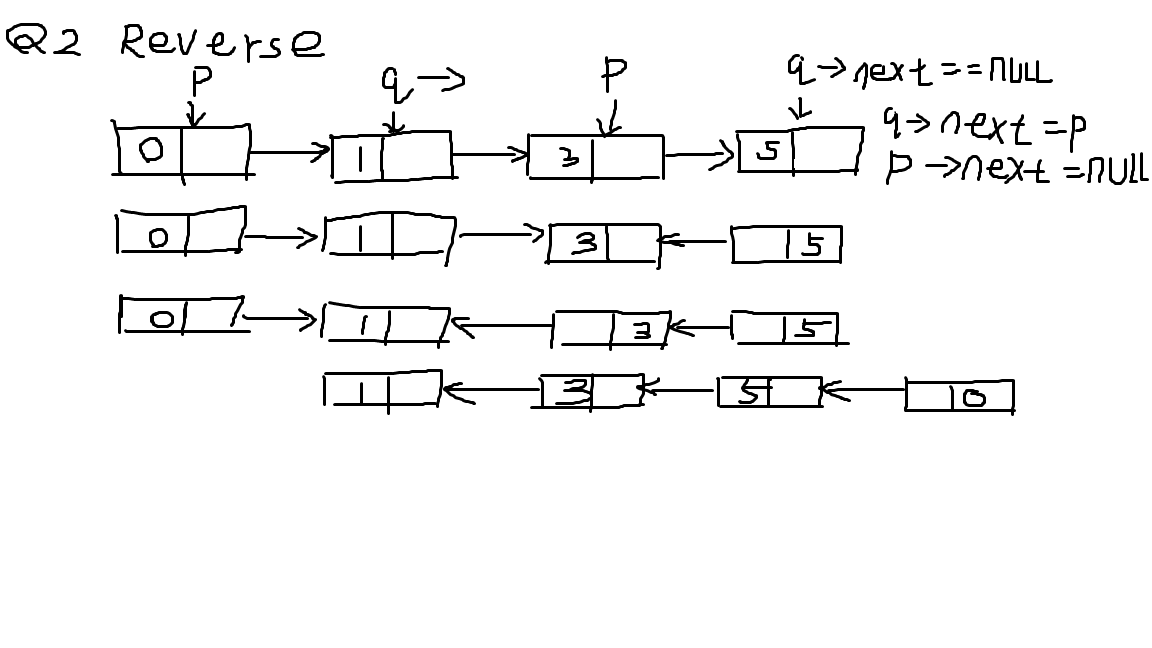 Q2 Reverse
p q → p q→next==null
0 1 3 5 q→next=p
p→next=null
0 1 3 5
0 1 3 5
1 3 5 0